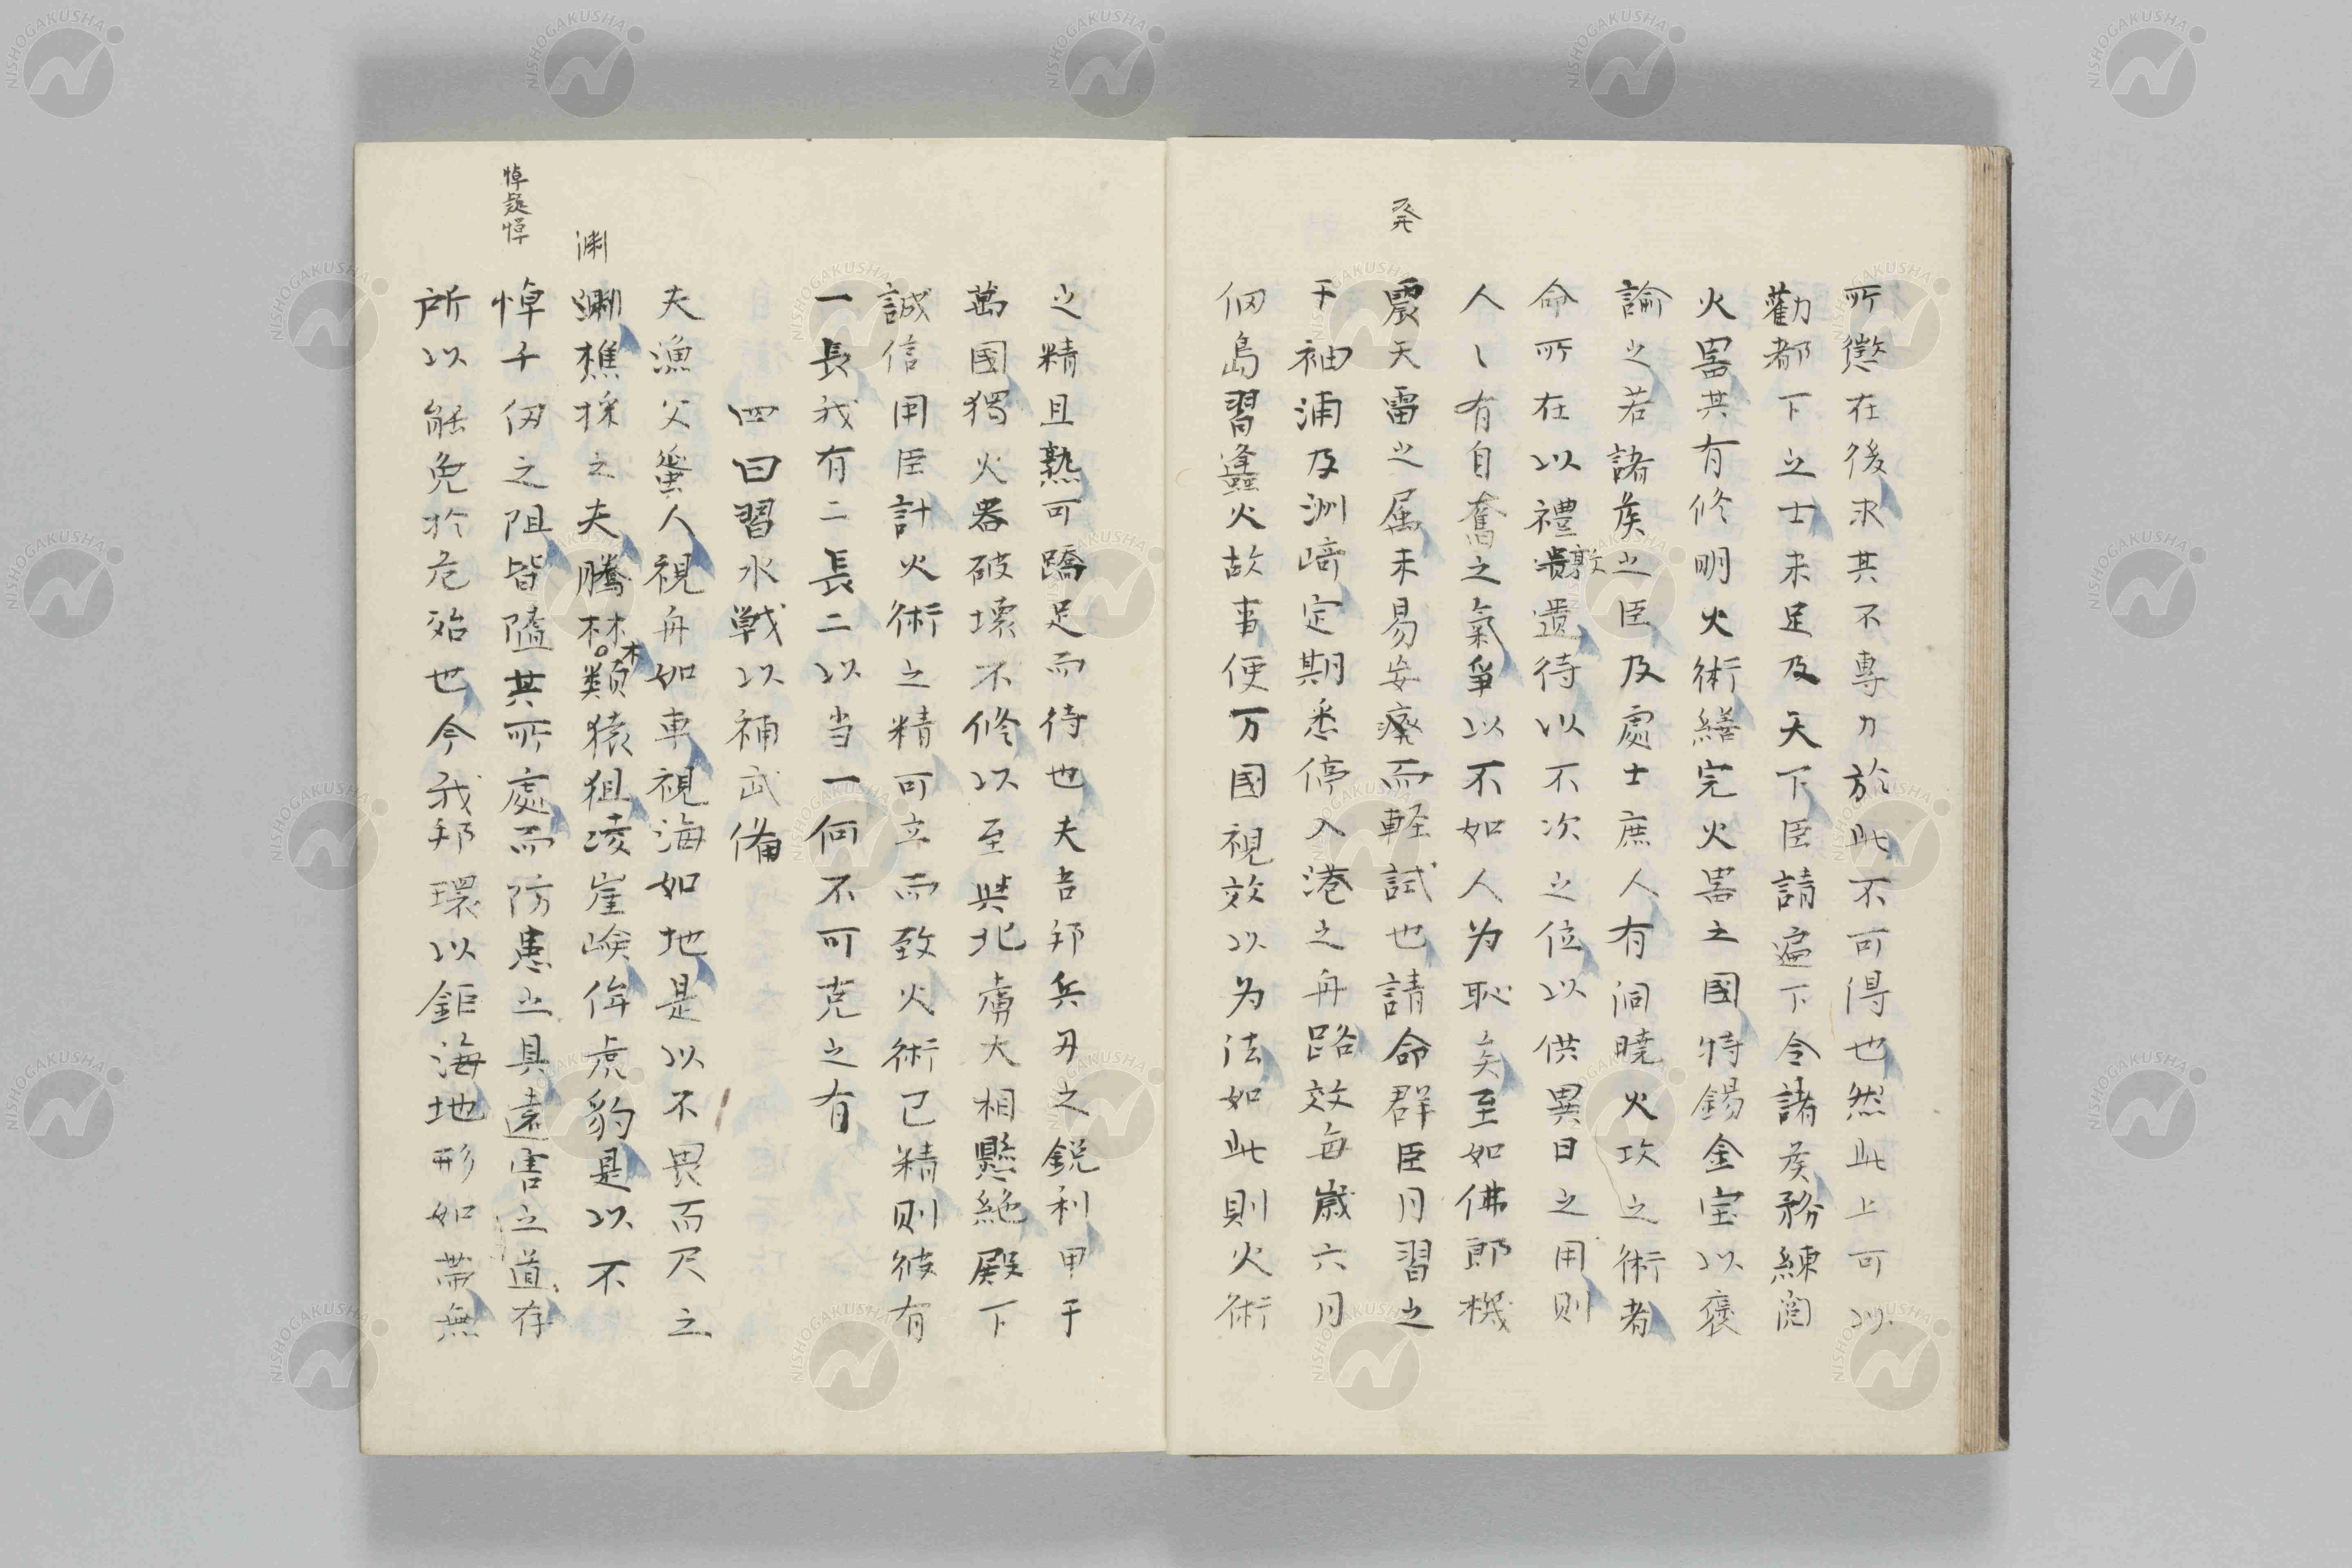 所懲在後求其不專力於此不可得也然此上可以
勸都下之士未足及天下臣請遍下令諸矦務練閲
火噐其有修明火術繕完火噐之國特錫金宝以褒
論之若諸矦之臣及處士庶人有洞曉火攻之術者
命所在以禮敦遣待以不次之位以供異日之用則
人々有自奮之氣爭以不如人为恥矣至如佛郎機
発
震天雷之属未易安癈而軽試也請命群臣月習之
于袖浦及洲﨑定期悉停入港之舟路效每歳六月
佃島習㷭火故事便万國視效以为法如此則火術
之精且熟可蹻足而待也夫吾邦兵刃之鋭利甲于
萬國獨火器破壞不修以至與北虜大相懸絶殿下
誠信用臣計火術之精可立而致火術已精则彼有
一長我有二長二以当一何不可克之有
四曰習水戦以補武備
夫漁父蜑人視舟如車視海如地是以不畏而尺之
渕
渕樵採之夫騰林木類猿狙凌崖嶮侔虎豹是以不
悼疑憚
悼千仞之阻皆隨其所處而防患之具遠害之道存
所以能免於危殆也今我邦環以鉅海地形如帶無
NISHOGAKUSHA